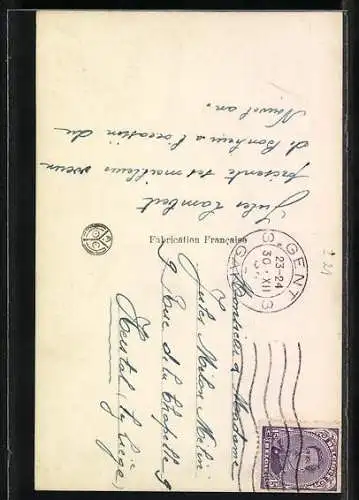 Jules Lambert
présente ses meilleurs vœux
de Bonheur à l'occasion du
Nouvel an.
Fabrication Française
GENT 3
23-24
30·XII
3 GAND
Monsieur & Madame
Jules
9 Rue de la Chapelle 9
Herstal (Lz Liège)
BELGIQUE